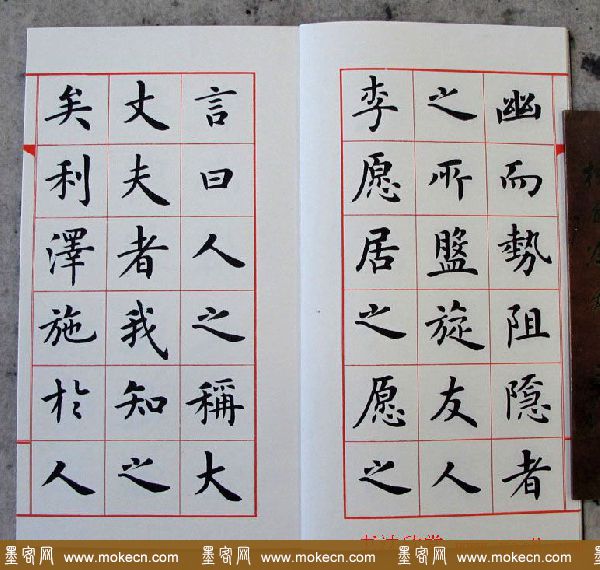 幽而勢阻隐者
之所盤旋友人
李愿居之愿之
言曰人之稱大
丈夫者我知之
矣利澤施於人
墨客网 www.mokecn.com 墨客网 www.mokecn.com 墨客网 www.mokecn.com